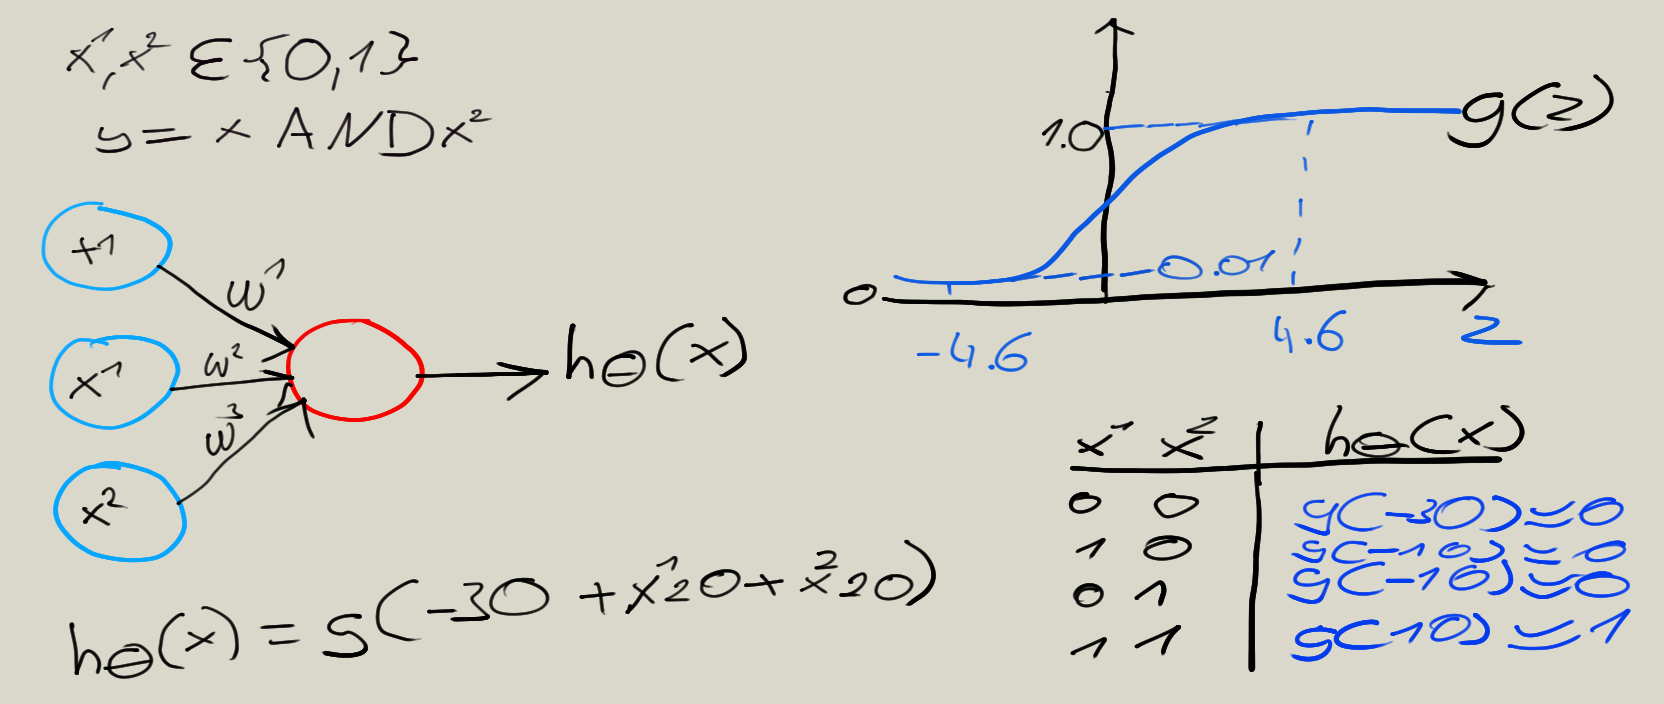 x¹, x² ∈ {0,1}
y = x AND x²
+1
w¹
x¹
w²
w³
x²
hΘ(x)
hΘ(x) = g(-30 + x¹20 + x²20)
g(z)
1.0
0.01
0
-4.6
4.6
z
x¹ x² hΘ(x)
0 0 g(-30) ≃ 0
1 0 g(-10) ≃ 0
0 1 g(-10) ≃ 0
1 1 g(10) ≃ 1